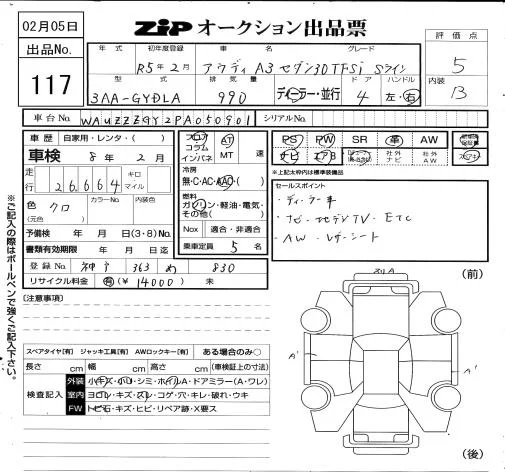 02月05日
ZIP オークション出品票
出品No.
117
評価点
5
内装
B
年式 初年度登録 車名 グレード
R5年2月 アウディ A3セダン30TFSi Sライン
型式 排気量 ドア ハンドル
3AA-GYDLA 990 ディーラー・並行 4 左・右
車台No. WAUZZZGY2PA050901 シリアルNo.
車歴 自家用・レンタ・( )
車検 8年 2月
走行 26,664 キロ マイル
色 クロ カラーNo. 内装色
(元色)
予備検 年 月 日(3・8)No.
書類有効期限 年 月 日迄
登録No. 神戸 363 め 830
リサイクル料金 有(¥ 14000) 未
フロア コラム インパネ AT MT 速
冷房
無・C・AC・AAC・( )
燃料
ガソリン・軽油・電気・その他( )
Nox 適合・非適合
乗車定員 5 名
PS PW SR 革 AW
ナビ エアB 社外ナビ 社外AW
※上記太枠内は標準装備品
セールスポイント
・ディーラー車
・ナビ・セダンTV・ETC
・AW・レザーシート
※ご記入の際はボールペンで強くご記入下さい。
(注意事項)
スペアタイヤ[有] ジャッキ工具[有] AWロックキー[有] ある場合のみ○
長さ cm 幅 cm 高さ cm (車検証上の寸法)
検査記入
外装 小キズ・小凹・シミ・ホイルA・ドアミラー(A・ワレ)
室内 ヨゴレ・キズ・スレ・コゲ・穴・キレ・破れ・ウキ
FW トビ石・キズ・ヒビ・リペア跡・X要ス
(前)
A'
A'
(後)